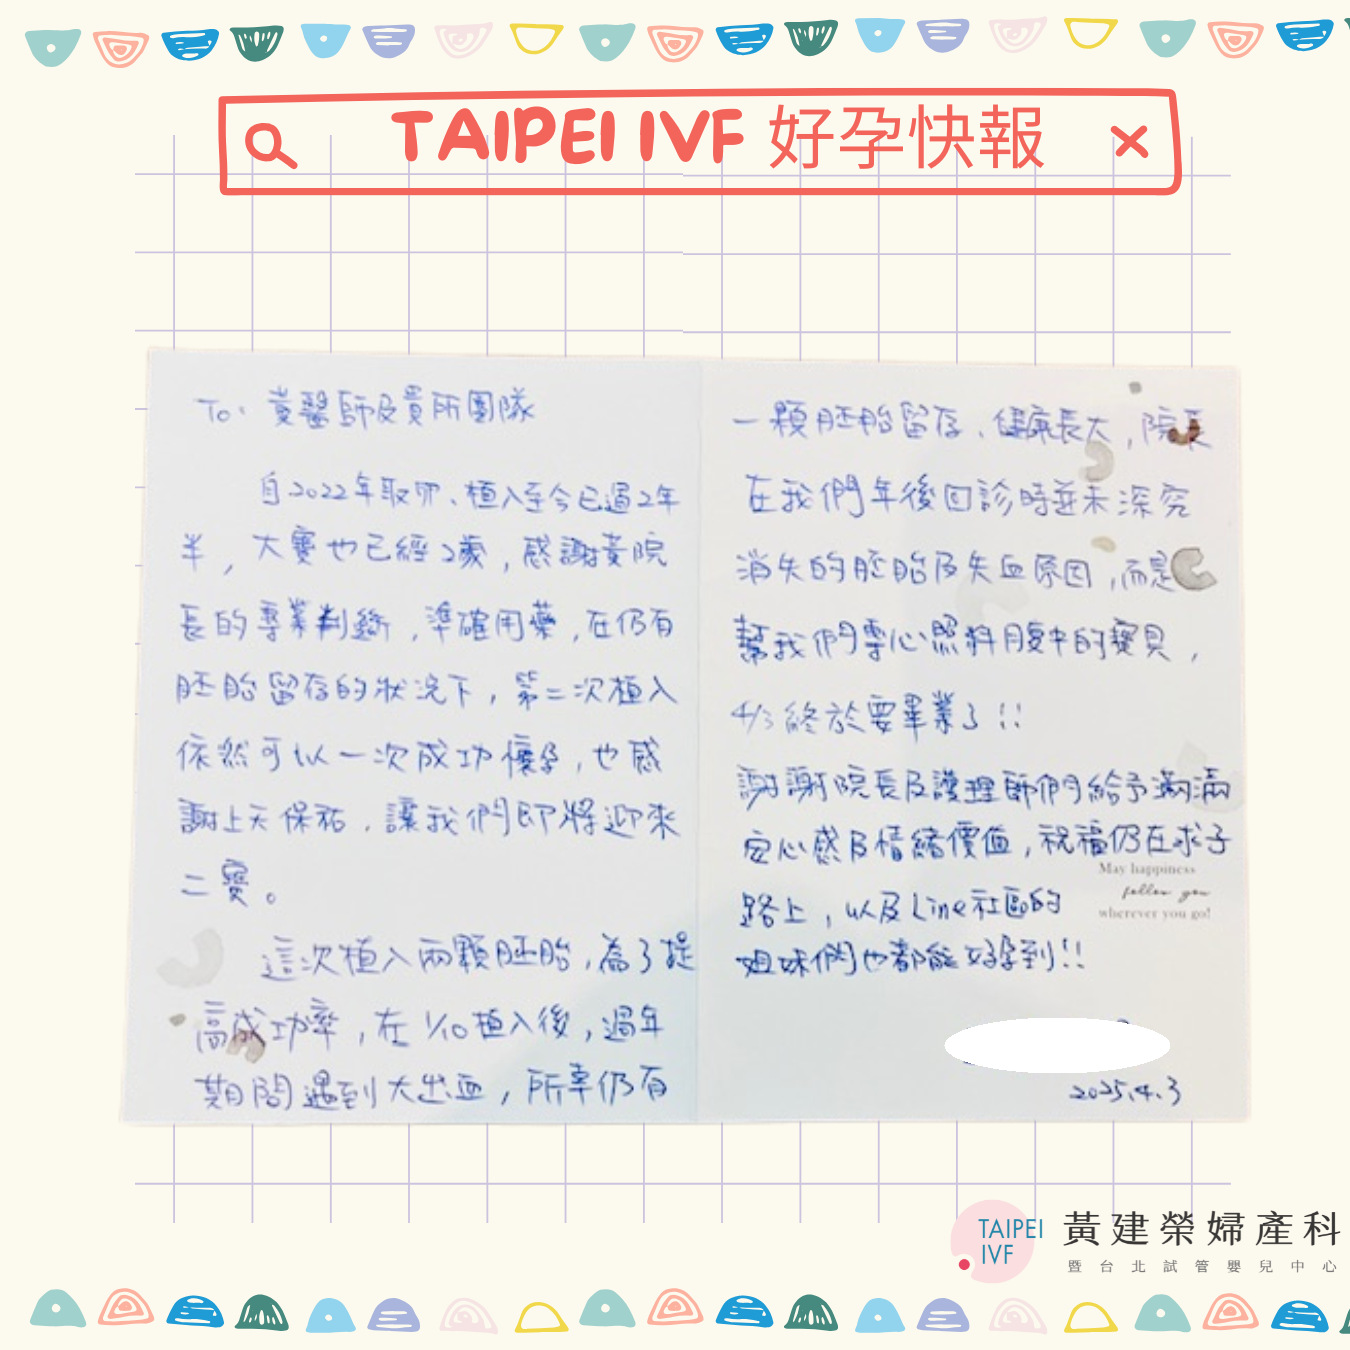 TAIPEI IVF 好孕快報
To. 黃醫師及貴所團隊
自2022年取卵、植入至今已過2年
半，大寶也已經2歲，感謝黃院
長的專業判斷，準確用藥，在仍有
胚胎留存的狀況下，第二次植入
依然可以一次成功懷孕，也感
謝上天保祐，讓我們即將迎來
二寶。
這次植入兩顆胚胎，為了提
高成功率，在1/10植入後，過年
期間遇到大出血，所幸仍有
一顆胚胎留存、健康長大，院長
在我們年後回診時並未深究
消失的胚胎及失血原因，而是
幫我們專心照料腹中的寶貝，
4/3終於要畢業了!!
謝謝院長及護理師們給予滿滿
安心感及情緒價值，祝福仍在求子
路上，以及Line社區的
姐妹們也都能好孕到!!
May happiness
follow you
wherever you go!
2025.4.3
TAIPEI IVF
黃建榮婦產科
暨台北試管嬰兒中心